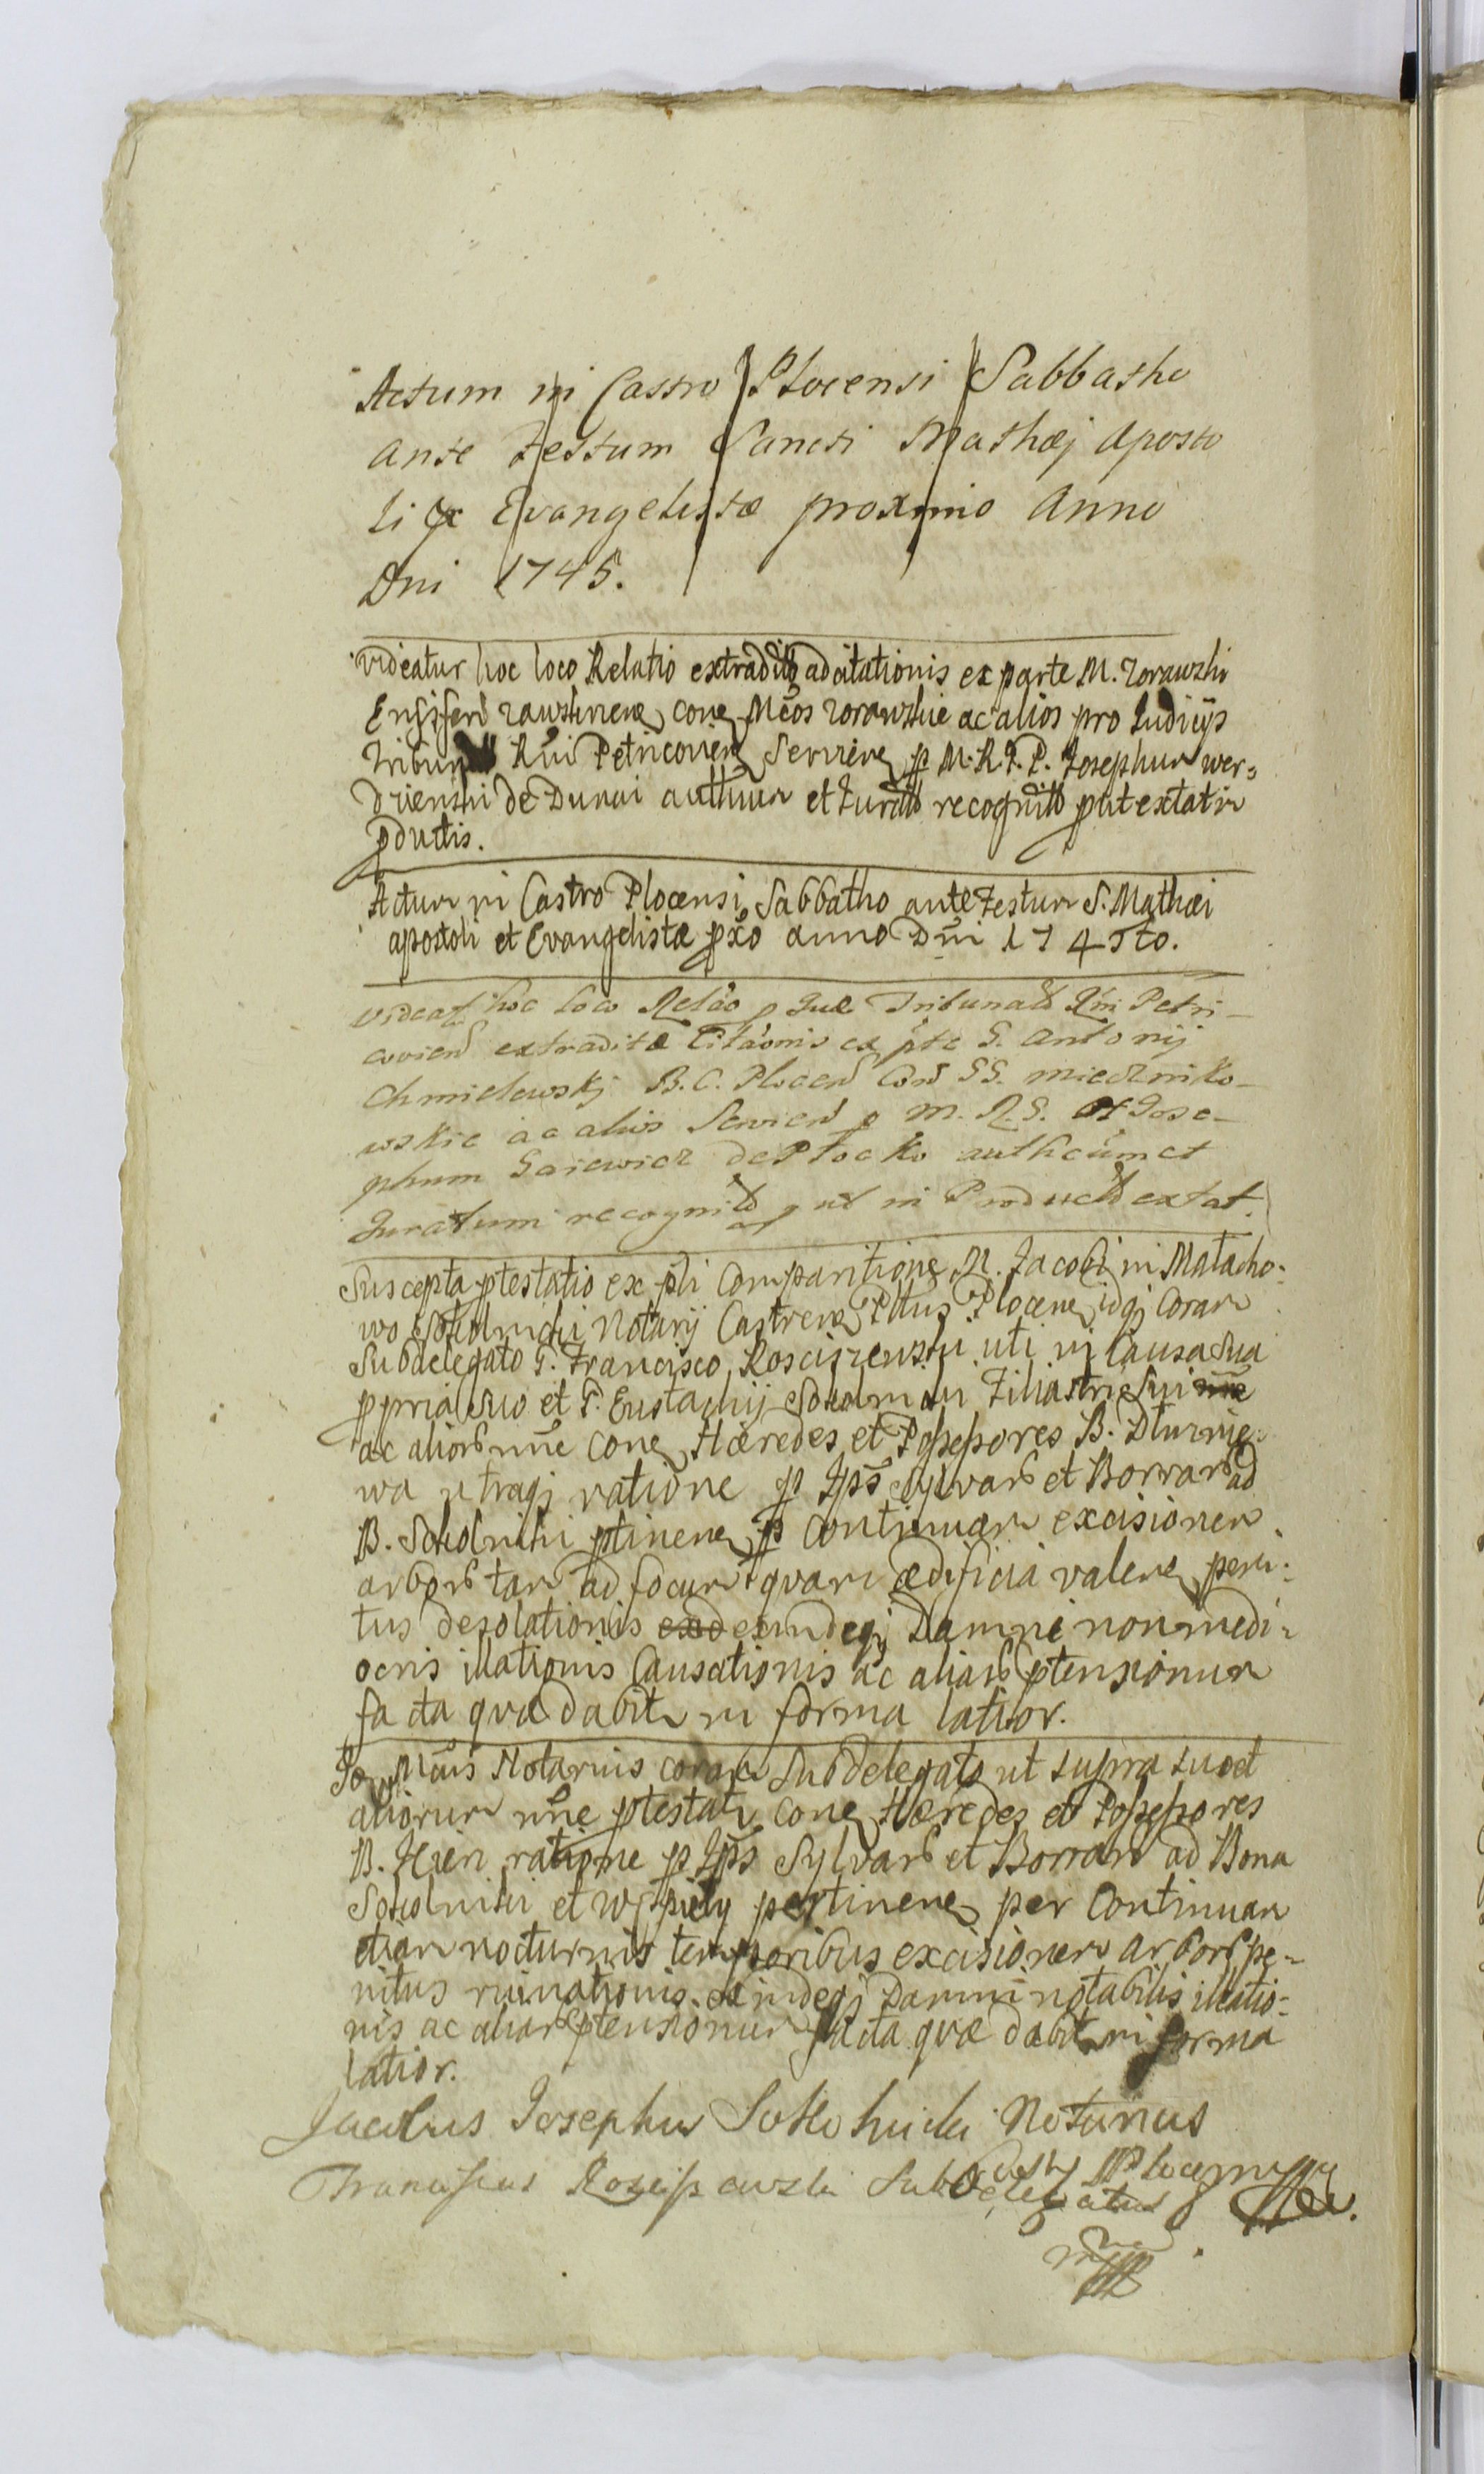 Actum in Castro Plocensi Sabbatho
ante Festum Sancti Mathæj Aposto
li & Evangelistæ proximio Anno
Dni 1745.
videatur hoc loco Relatio extradittæ adcitationis ex parte M. Zorawski
Ensiferi rawskinens cone Mcos Zorawskie ac alios pro Judicijs
Tribun Rni Petricovien Servien p M. R. P. P. Josephum wer=
drienski de Dunai authum et Jurattt recognittt put extat in
pductis.
Actum in Castro Plocensi Sabbatho ante Festum S. Mathæi
apostoli et Evangelistæ pxo anno Dni 1745to.
videat hoc loco Relao p Jud Tribunald Rni Petri-
covien extraditæ Citaonis ex pte G. Antonij
Chmielewskj B. C. Plocen Con GG. miedzniko-
wskie ac alios Servien p M. R. G. Jose-
phum Gaiewicz de Plocko autheum et
Juratum recognitt p ut in Productt extat.
Suscepta ptestatio ex pli Comparitione M. Jacobi in Matacho-
wo Sokolnicki Notarij Castren Pttus Plocene idqj Coram
Subdelegato G. Francisco Kosciszewski uti in Causa sua
ppria suo et G. Eustachij Sokolnicki Filiastri sui
ac aliorum nne cone Hæredes et Possessores B. Dłuznie-
wa utraqj ratione p Jps Sylvarum et Borrarum ad
B. Sokolniki ptinene p Continuam excisionem
arborum tam ad focum quam ædificia valene peni-
tus desolationis exindeqj Damni non medi-
ocris illationis Causationis ac aliarum ptensionum
facta quæ dabitr in forma latior.
Mcus Notarius coram Subdelegato ut supra suo et
aliorum nne ptestatr cone Hæredes et Possessores
B. Hieri ratione p Jps Sylvarum et Borrarum ad Bona
Sokolniki et pertinene per Continuam
etiam nocturnis temporibus excisionem arborum pe-
nitus ruinationis exindeqj Damni notabilis illatio-
nis ac aliarum ptensionum facta quæ dabitr in forma
latior.
Jacobus Josephus Sokolnicki Notarius
Cast Plocensis
Franciscus Kosciszewski Subdelegatus